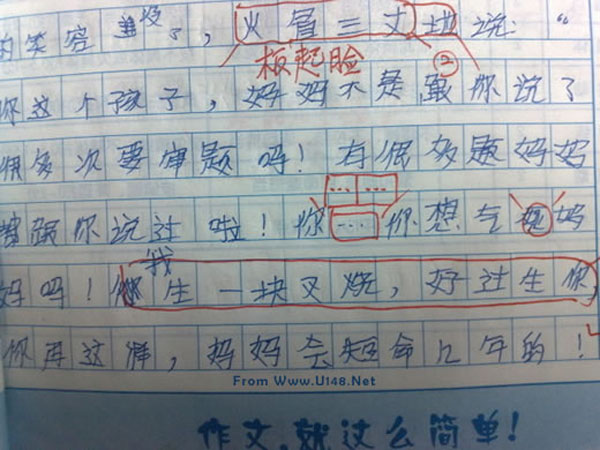 的笑容 兽没了，火冒三丈地说："
板起脸 ②
你这个孩子，妈妈不是跟你说了
很多次要审题吗！有很多题妈妈
都跟你说过啦！你……你想气死妈
我
妈吗！你生一块叉烧，好过生你
你再这样，妈妈会短命几年的！
From Www.U148.Net
作文，就这么简单！